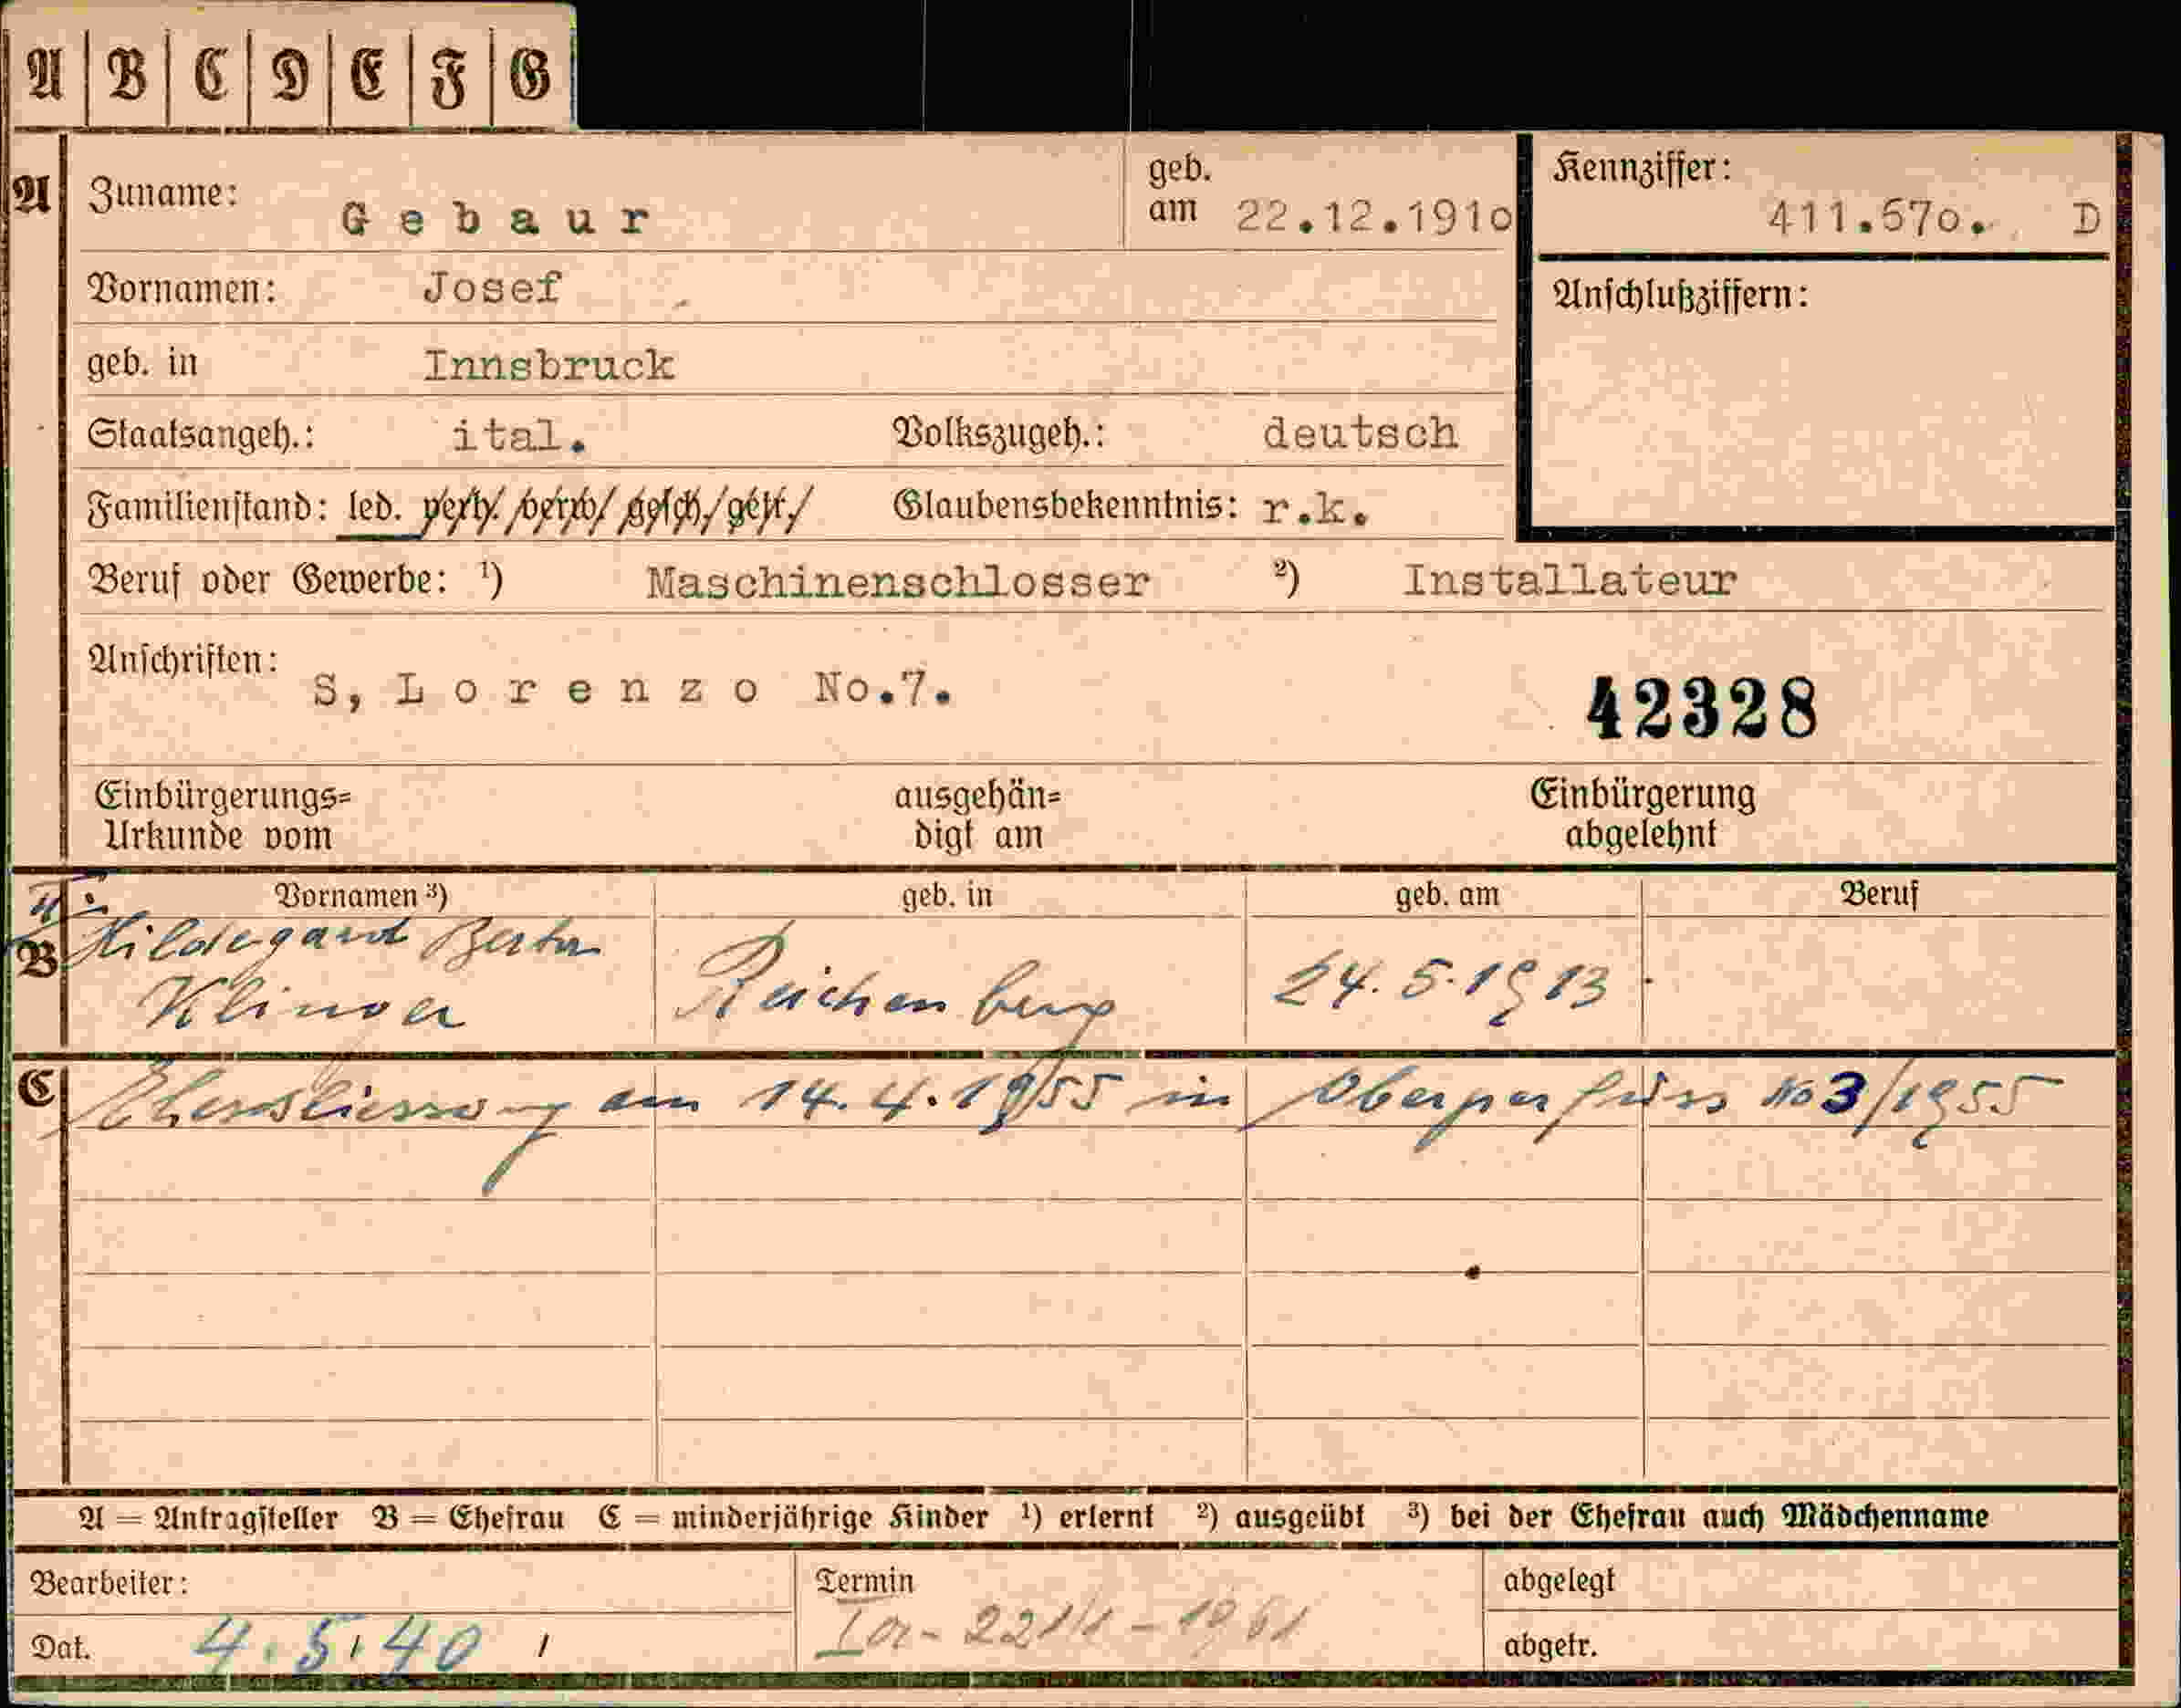 A B C D E F G
A Zuname: Gebaur geb. am 22.12.1910 Kennziffer: 411.570. D
Vornamen: Josef Anschlußziffern:
geb. in Innsbruck
Staatsangeh.: ital. Volkszugeh.: deutsch
Familienstand: led. verh. verw. gesch. getr. Glaubensbekenntnis: r.k.
Beruf oder Gewerbe: ¹) Maschinenschlosser ²) Installateur
Anschriften: S, Lorenzo No.7.
42328
Einbürgerungs= Urkunde vom
ausgehän= digt am
Einbürgerung abgelehnt
Vornamen ³) geb. in geb. am Beruf
B Hildegard Berta
Klinger Reichenberg 24.5.1913
C Eheschliessung am 14.4.1955 in Oberperfuss No 3/1955
A = Antragsteller B = Ehefrau C = minderjährige Kinder ¹) erlernt ²) ausgeübt ³) bei der Ehefrau auch Mädchenname
Bearbeiter: Termin abgelegt
Dat. 4.5.40 abgetr.